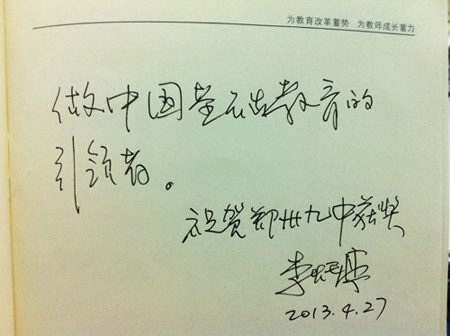 为教育改革蓄势 为教师成长蓄力
做中国基础教育的
引领者。
祝贺郑州九中获奖
李炳亭
2013.4.27